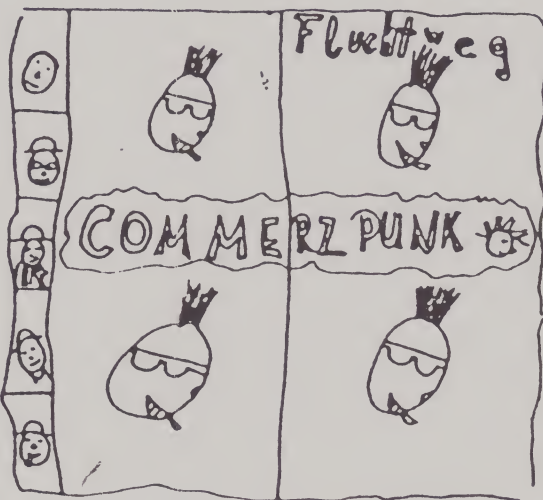 Fluchtweg
COMMERZPUNK